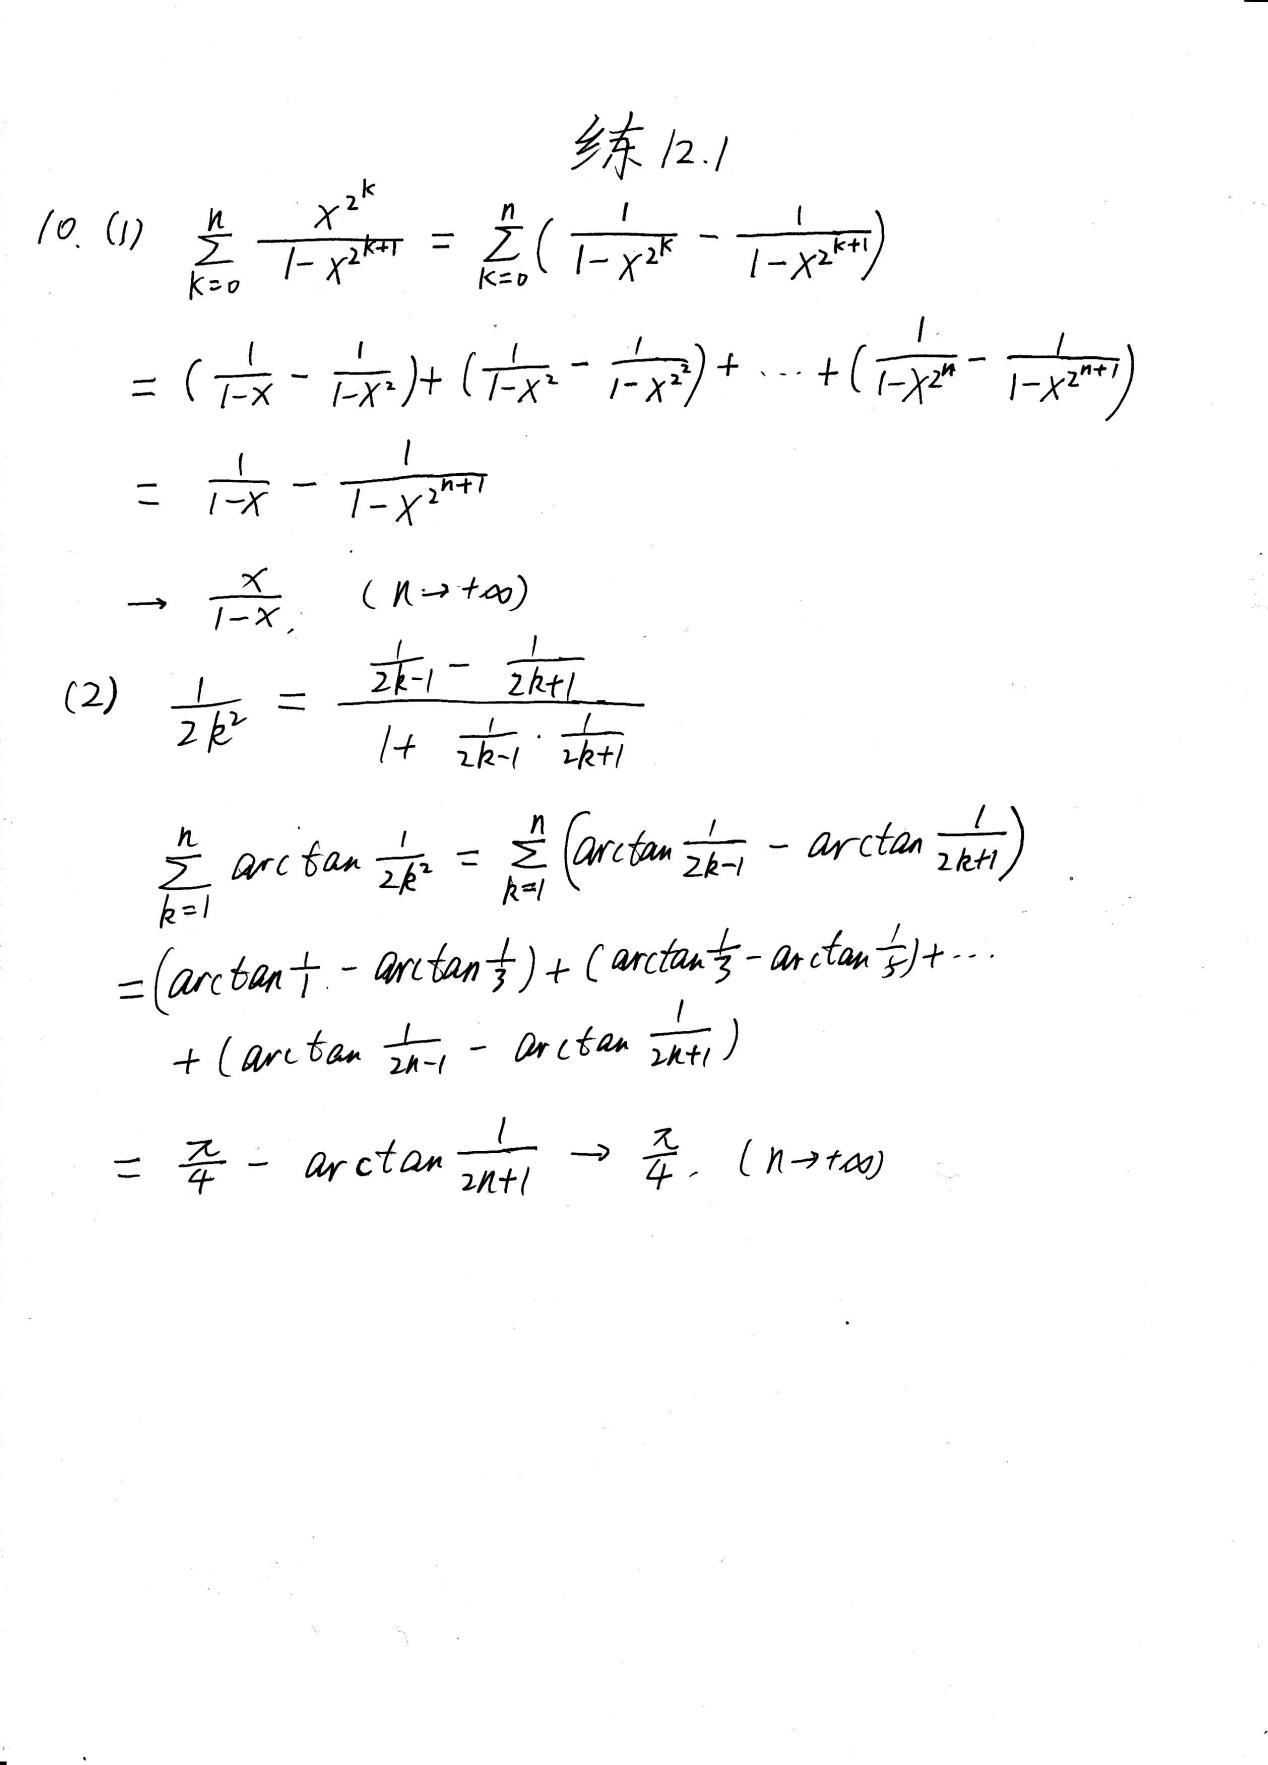 练 12.1
10. (1) $\sum_{k=0}^{n} \frac{x^{2^k}}{1-x^{2^{k+1}}} = \sum_{k=0}^{n} \left( \frac{1}{1-x^{2^k}} - \frac{1}{1-x^{2^{k+1}}} \right)$
$= \left( \frac{1}{1-x} - \frac{1}{1-x^2} \right) + \left( \frac{1}{1-x^2} - \frac{1}{1-x^{2^2}} \right) + \cdots + \left( \frac{1}{1-x^{2^n}} - \frac{1}{1-x^{2^{n+1}}} \right)$
$= \frac{1}{1-x} - \frac{1}{1-x^{2^{n+1}}}$
$\to \frac{x}{1-x}. \quad (n \to +\infty)$
(2) $\frac{1}{2k^2} = \frac{\frac{1}{2k-1} - \frac{1}{2k+1}}{1 + \frac{1}{2k-1} \cdot \frac{1}{2k+1}}$
$\sum_{k=1}^{n} \arctan \frac{1}{2k^2} = \sum_{k=1}^{n} \left( \arctan \frac{1}{2k-1} - \arctan \frac{1}{2k+1} \right)$
$= \left( \arctan \frac{1}{1} - \arctan \frac{1}{3} \right) + \left( \arctan \frac{1}{3} - \arctan \frac{1}{5} \right) + \cdots$
$+ \left( \arctan \frac{1}{2n-1} - \arctan \frac{1}{2n+1} \right)$
$= \frac{\pi}{4} - \arctan \frac{1}{2n+1} \to \frac{\pi}{4}. \quad (n \to +\infty)$